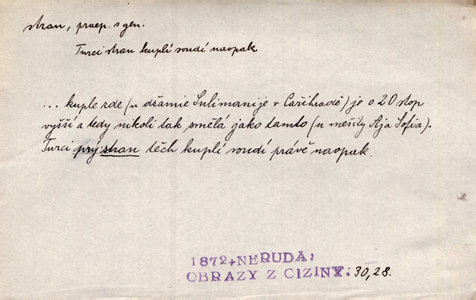 stran, praep. s gen.
Turci stran kuplí soudí naopak
... kuple zde (u džamie Sulimanije v Cařihradě) je o 20 stop
vyšší a tedy nikoli tak smělá jako tamto (u mešity Aja Sofia).
Turci prý stran těch kuplí soudí právě naopak.
1872+NERUDA:
OBRAZY Z CIZINY. 30,28.